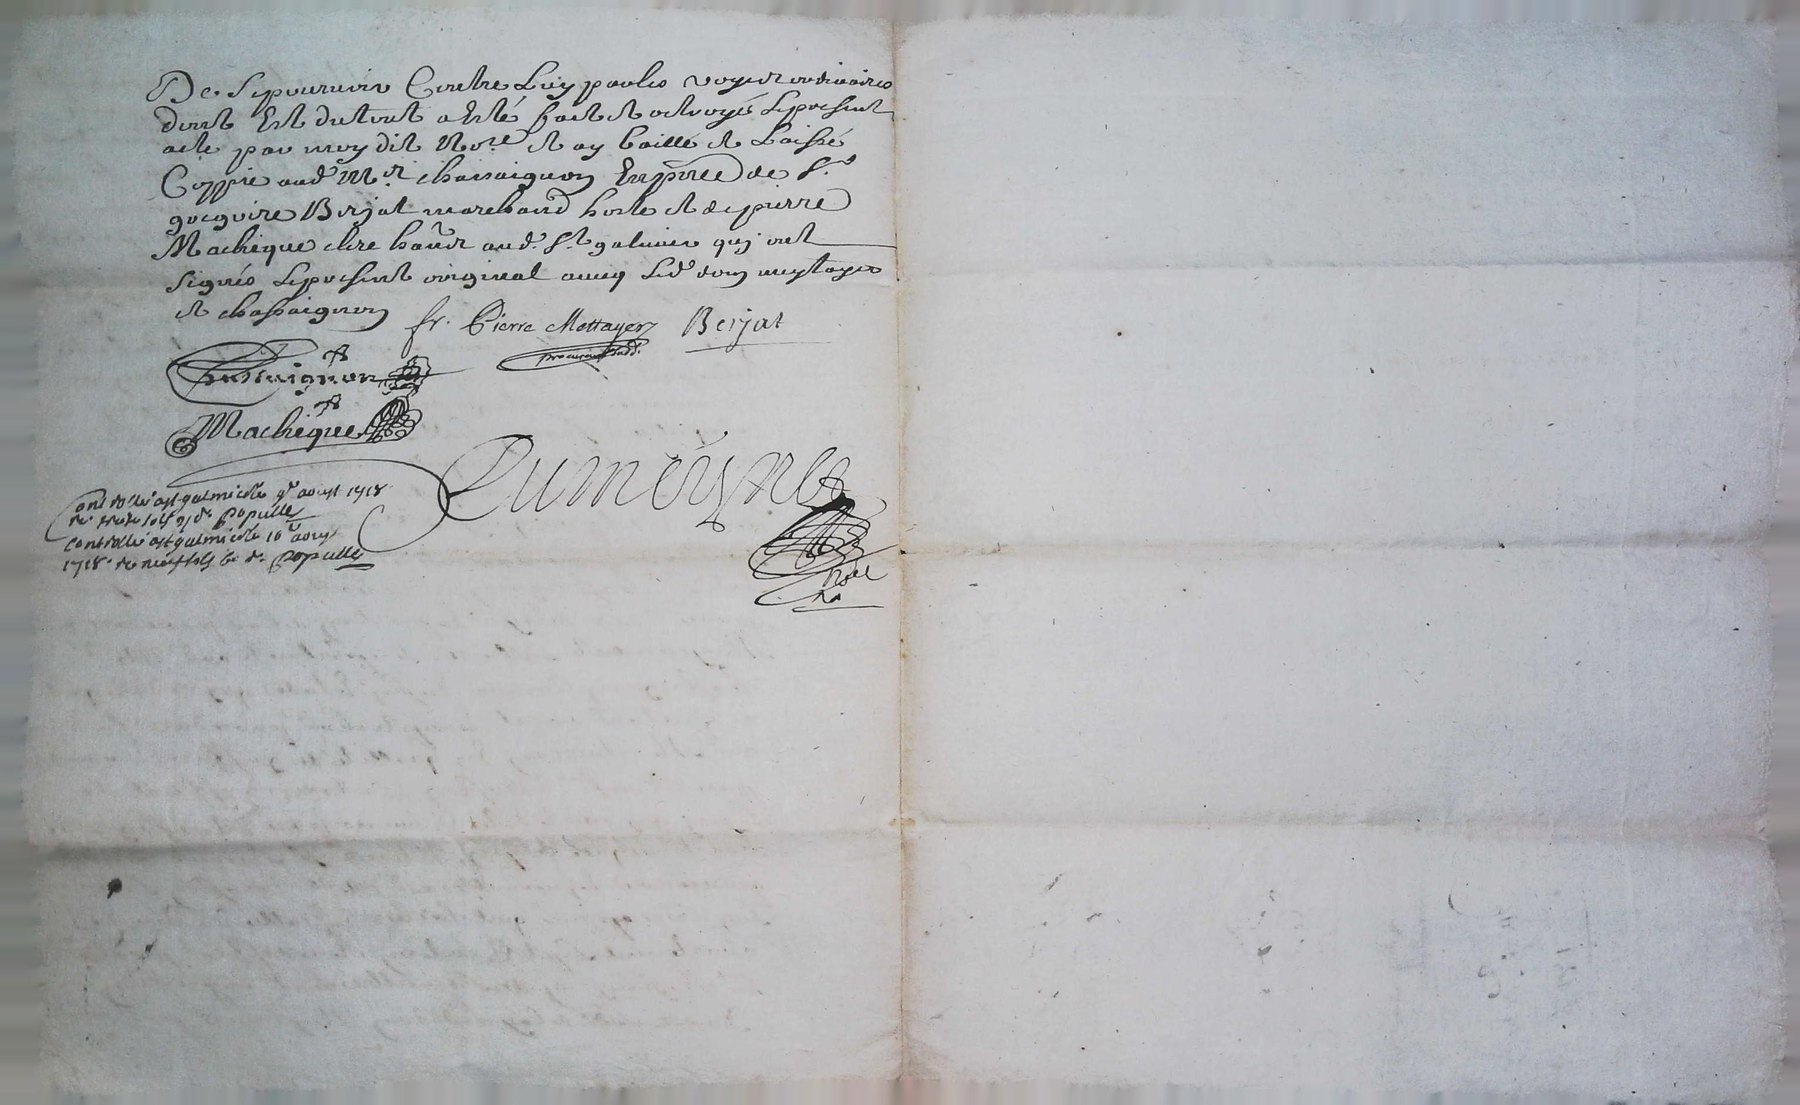 De se pourvoir Contre Luy par les voyes ordinaires
dont Est du tout a esté fait et octroyé le present
acte par moy dit No.re et ay baillé et Laissé
Coppie aud. Mr. chassaignon En p.nce de Sr.
gregoire Berjat marchand hoste et de pierre
Machique clerc hant aud. St. galmier quj ont
signés le present original avecq led. dom mestayer
et chassaignon
fr. Pierre Mettayer Berjat
procureur sudd.
Chassaignon
Machique
Dumeÿnes
Controllé a st galmier le 9e aoust 1718
Re. trente sols 9 d. Populle
Controllé a st galmier le 16e aoust
1718 Re neuf sols 6 d. Populle